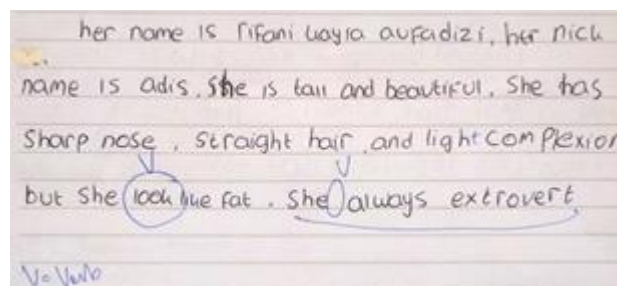 her name is rifani wayra aufadizi, her nick
name is adis. she is tall and beautiful. She has
Sharp nose, straight hair, and light complexion
V V
but she look like fat. She always extrovert.
V= Verb